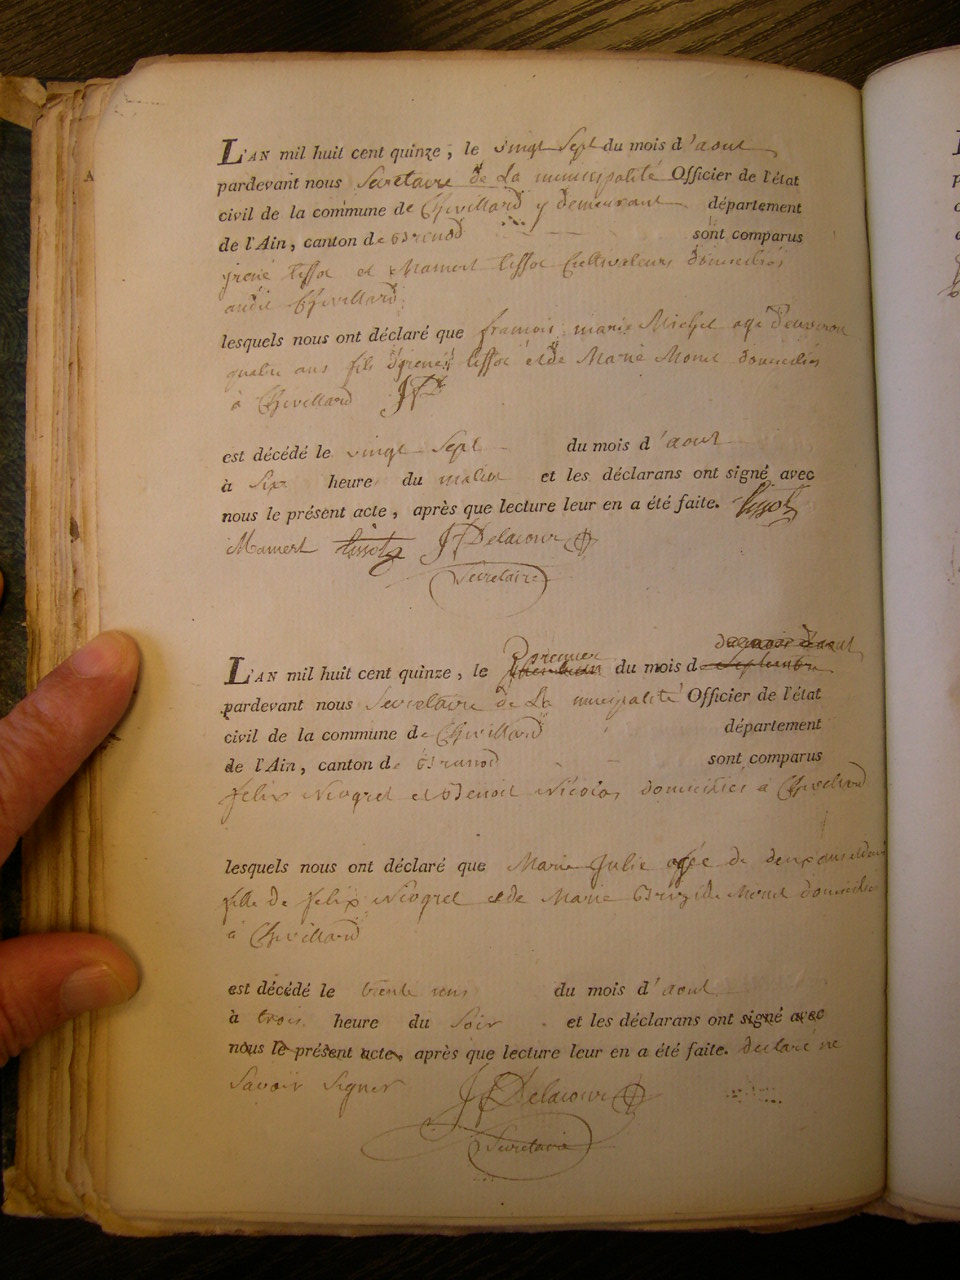 L'AN mil huit cent quinze, le vingt sept du mois d'aout
pardevant nous Secretaire de La municipalité Officier de l'état
civil de la commune de Chevillard y demeurant département
de l'Ain, canton de Brenod sont comparus
tissot et Mamert tissot Cultivateurs domiciliés
audit Chevillard
lesquels nous ont déclaré que francois marie Michel agé
quatre ans fils tissot et de Marie Monet domiciliés
à Chevillard JD
est décédé le vingt Sept du mois d'aout
à Six heure du matin et les déclarans ont signé avec
nous le présent acte, après que lecture leur en a été faite. tissot
Mamert tissot JDelacour
Secretaire
premier
L'AN mil huit cent quinze, le du mois de Septembre
pardevant nous Secretaire de La municipalité Officier de l'état
civil de la commune de Chevillard département
de l'Ain, canton de Brenod sont comparus
felix Niogret et Benoit Nicolas domiciliés à Chevillard
lesquels nous ont déclaré que Marie Julie agée de deux ans
fille de felix Niogret et de Marie Brigide Monet domiciliés
à Chevillard
est décédé le trente du mois d'aout
à trois heure du Soir et les déclarans ont signé avec
nous le présent acte, après que lecture leur en a été faite. declaré ne
Savoir Signer JDelacour
Secretaire